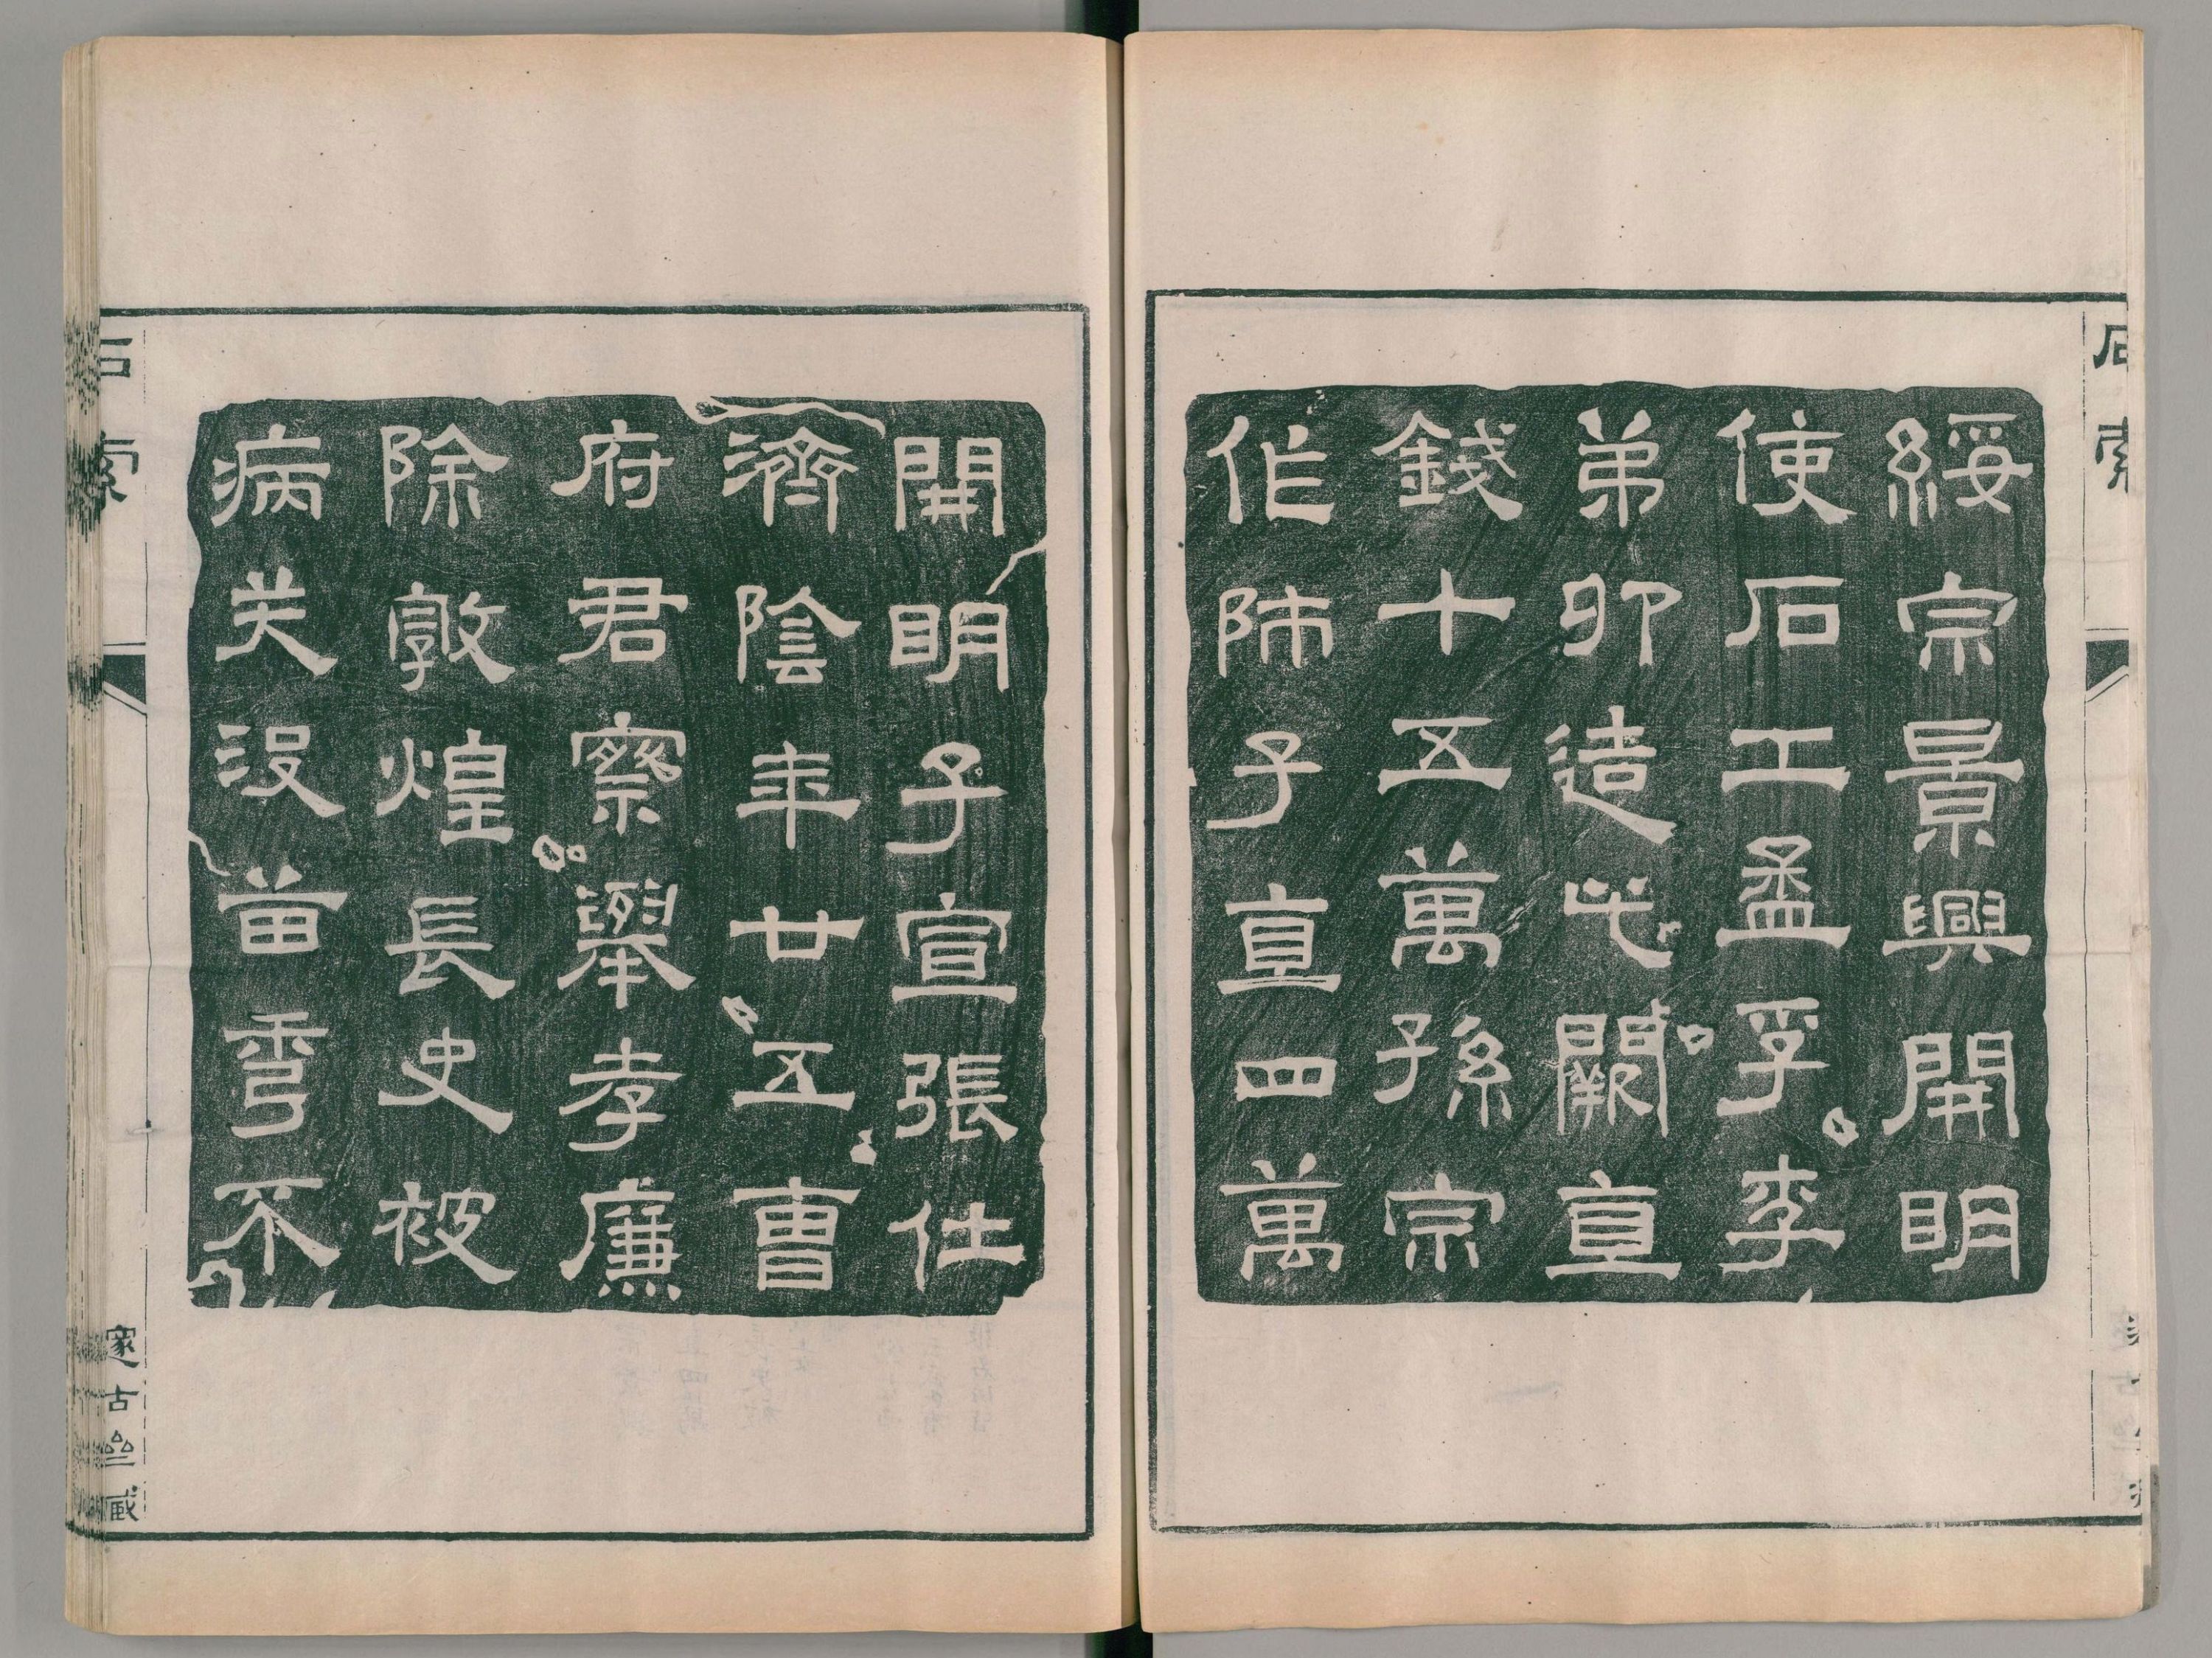 石索
綏宗景興開明
使石工孟孚李
弟卯造此闕直
錢十五萬孫宗
作師子直四萬
開明子宣張仕
濟陰年廿五曹
府君察舉孝廉
除敦煌長史被
病夭沒苗秀不
石索
邃古齋藏